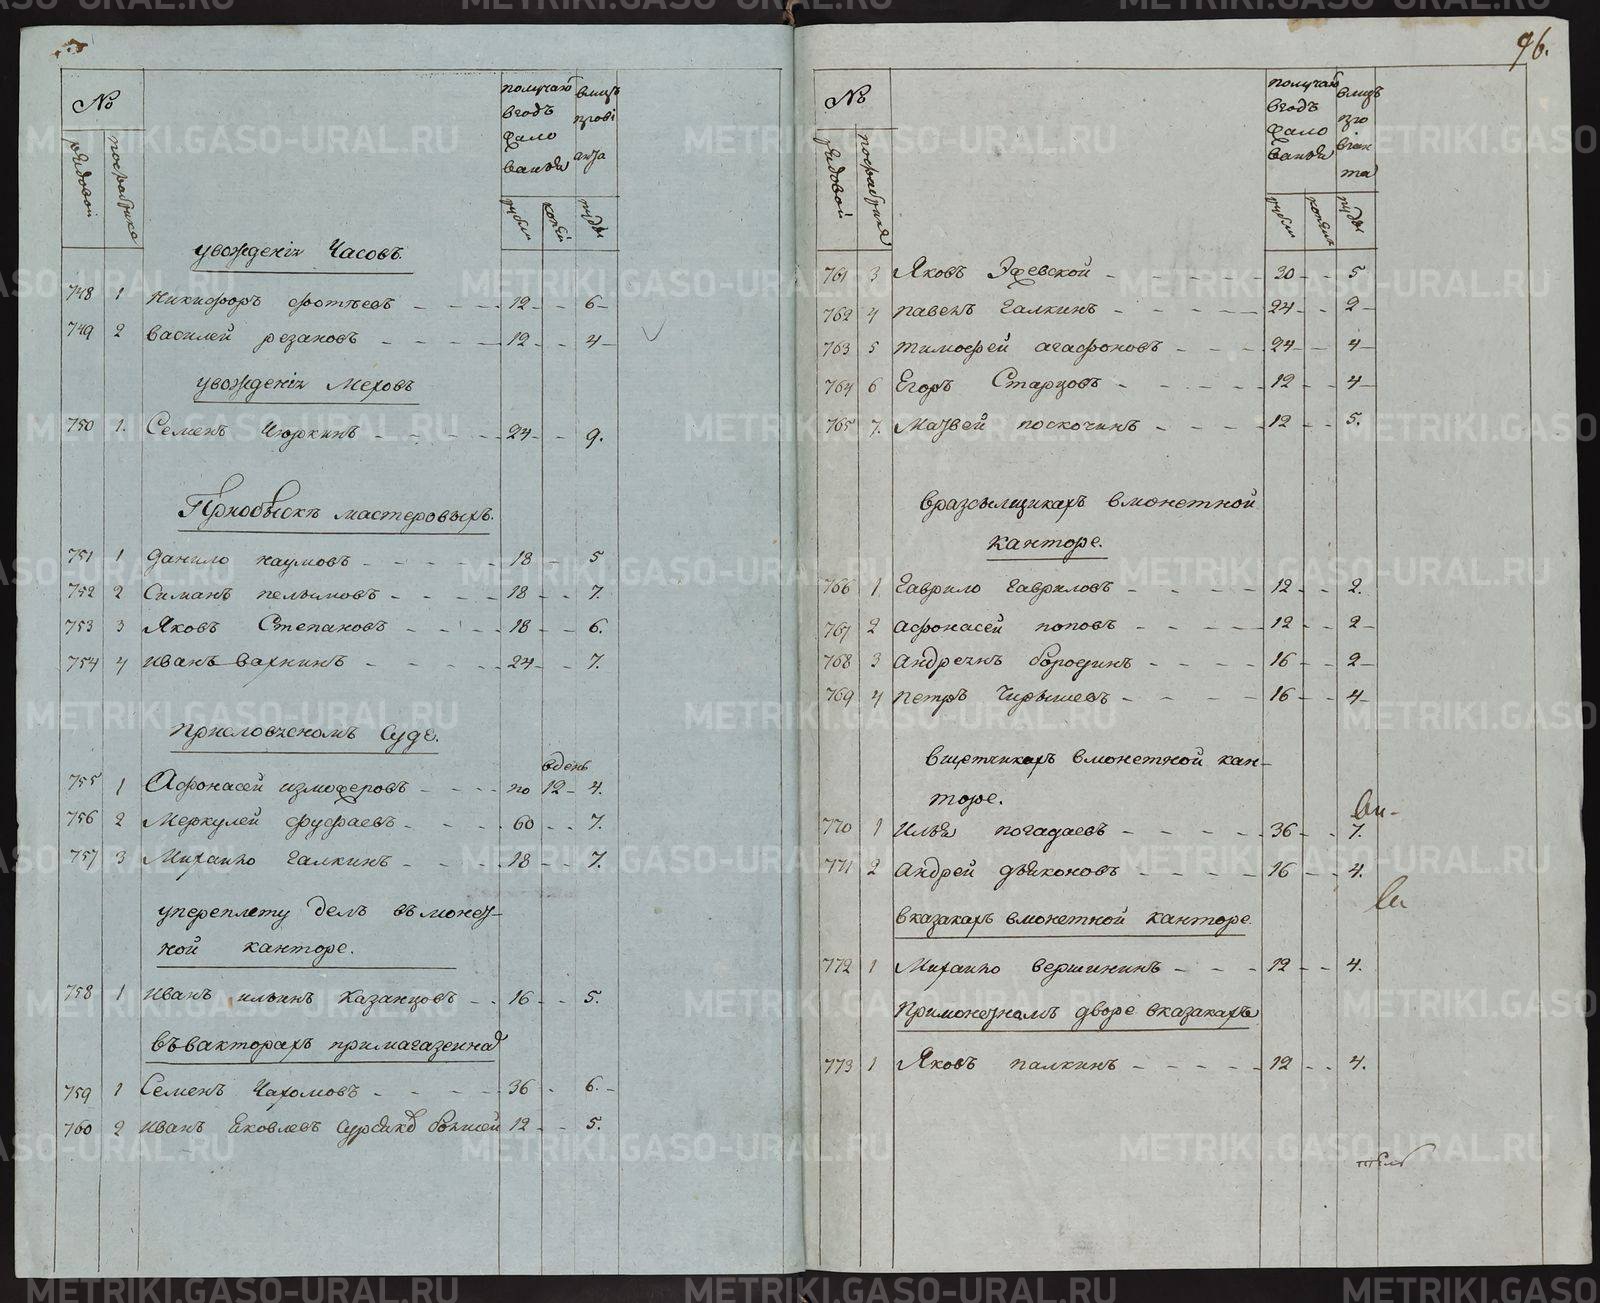 №
рядовой
пофабрике
получаю вгодъ жалованья
вмцъ провіанта
рубли
копѣй
пуды
увожденія Часовъ.
748 1 никифоръ фотѣевъ 12 6
749 2 василей резановъ 12 4
увожденія Мѣховъ
750 1. Семенъ Чюркинъ 24 9.
При обыскѣ мастеровыхъ.
751 1 данило наумовъ 18 5
752 2 Симанъ пелымовъ 18 7.
753 3 Яковъ Степановъ 18 6.
754 4 иванъ вахнинъ 24 7.
При словесномъ Суде.
вдень
755 1 Афонасей изможеровъ по 12 4.
756 2 Меркулей фуфаевъ 60 7.
757 3 Михаило галкинъ 18 7.
упереплету делъ въ монет-
ной канторе.
758 1 иванъ ильинъ казанцовъ 16 5.
въ вакторахъ примагазеина
759 1 Семенъ Чахомовъ 36 6.
760 2 иванъ Яковлевъ болшей 12 5.
96.
№
рядовой
пофабрике
получаю вгодъ жалованья
вмцъ провианта
рубли
копѣйк
пуды
761 3 Яковъ Ржевской 30 5
762 4 павелъ галкинъ 24 2
763 5 тимофей агафоновъ 24 4
764 6 Егоръ Старцовъ 12 4
765 7. Матвей поскочинъ 12 5.
вразсыльщикахъ вмонетной
канторе.
766 1 гаврило гавриловъ 12 2.
767 2 афонасей поповъ 12 2
768 3 андреянъ бородинъ 16 2
769 4 петръ Чирышевъ 16 4
вщетчикахъ вмонетной кан-
торе.
770 1 илья погадаевъ 36 7.
771 2 андрей дьяконовъ 16 4.
вказакахъ вмонетной канторе
772 1 Михаило вершининъ 12 4.
Примонетномъ дворе вказакахъ
773 1 Яковъ палкинъ 12 4.
METRIKI.GASO-URAL.RU